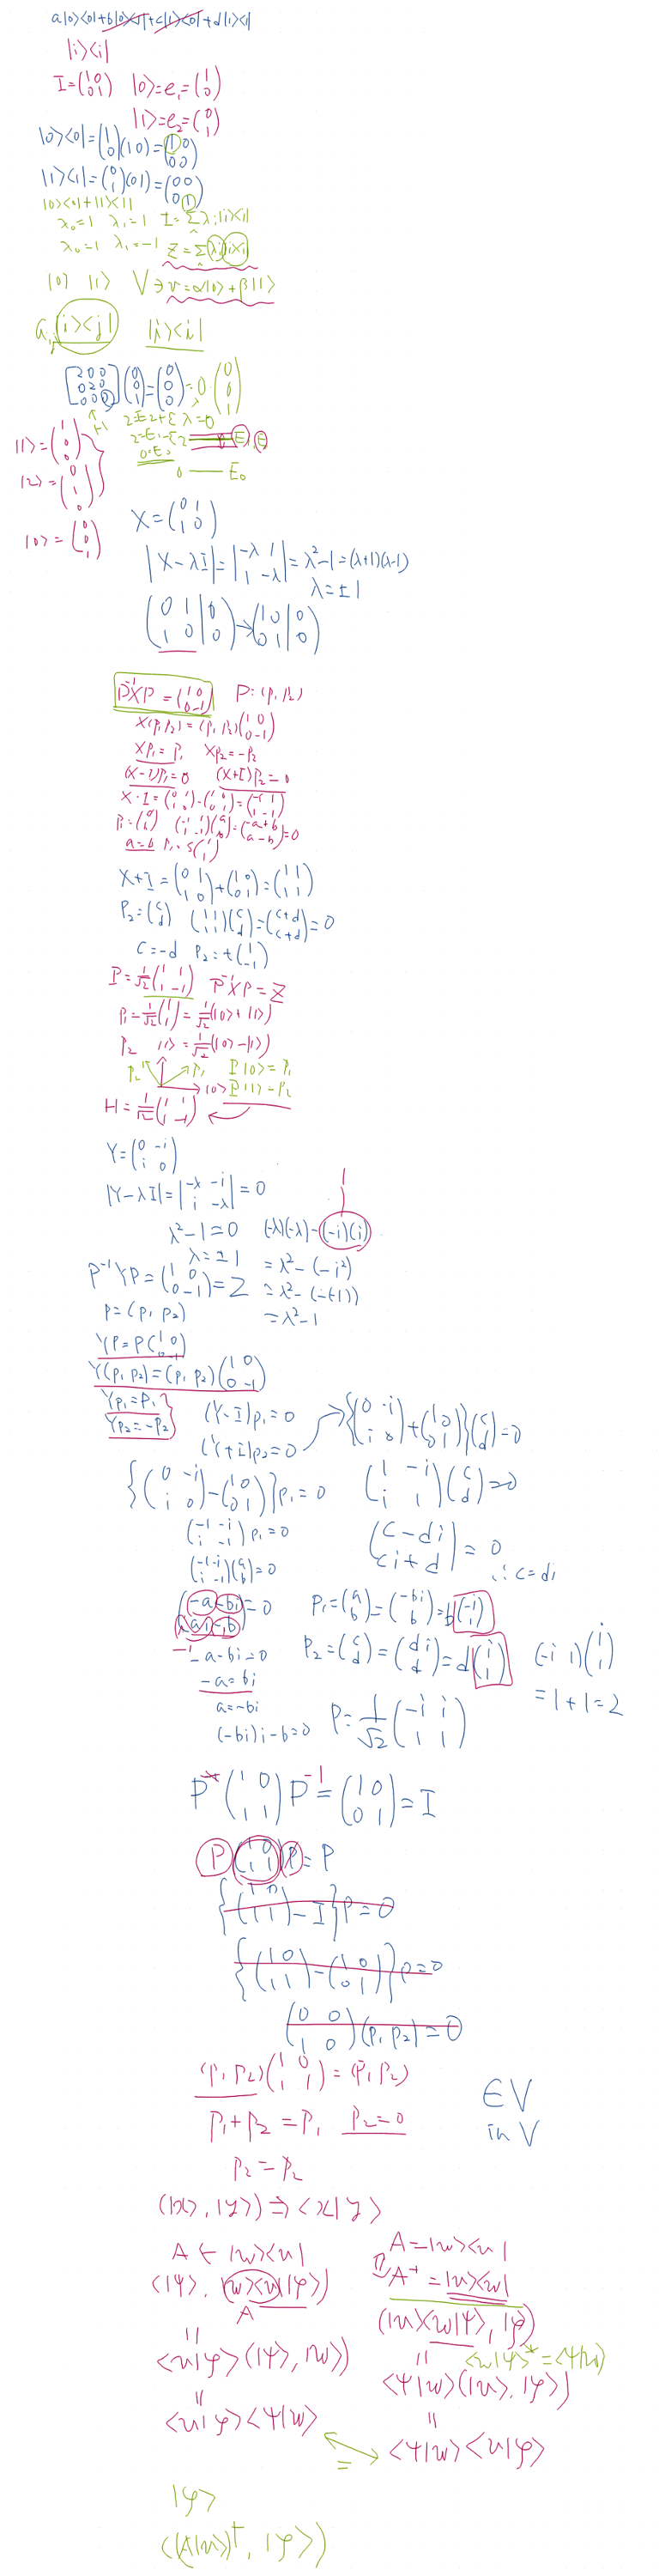 a|0><0|+b|0><1|+c|1><0|+d|1><1|
|i><i|
I=(1 0 0 1) |0>=e₁=(1 0)
|1>=e₂=(0 1)
|0><0|=(1 0)(1 0)=(1 0 0 0)
|1><1|=(0 1)(0 1)=(0 0 0 1)
|0><0|+|1><1|
λ₀=1 λ₁=1 I=Σλᵢ|i><i|
λ₀=1 λ₁=-1 Z=Σλᵢ|i><i|
|0> |1> V∋v=α|0>+β|1>
aᵢⱼ|i><j| |i><i|
[2 0 0 0 2 0 0 0 0](0 0 1)=(0 0 0)=0·(0 0 1)
λ=0
|1>=(1 0 0)
|2>=(0 1 0)
0 — E₀
|0>=(0 0 1)
X=(0 1 1 0)
|X-λI|=|-λ 1 1 -λ|=λ²-1=(λ+1)(λ-1)
λ=±1
(0 1|0 1 0|0)→(1 0|0 0 1|0)
P⁻¹XP=(1 0 0 -1) P=(p₁ p₂)
X(p₁ p₂)=(p₁ p₂)(1 0 0 -1)
Xp₁=p₁ Xp₂=-p₂
(X-I)p₁=0 (X+I)p₂=0
X-I=(0 1 1 0)-(1 0 0 1)=(-1 1 1 -1)
p₁=(a b) (-1 1 1 -1)(a b)=(-a+b a-b)=0
a=b p₁=s(1 1)
X+I=(0 1 1 0)+(1 0 0 1)=(1 1 1 1)
p₂=(c d) (1 1 1 1)(c d)=(c+d c+d)=0
c=-d p₂=t(1 -1)
P=1/√2(1 1 1 -1) P⁻¹XP=Z
p₁=1/√2(1 1)=1/√2(|0>+|1>)
p₂ |1>=1/√2(|0>-|1>)
p₂ p₁ P|0>=p₁
|0> P|1>=p₂
H=1/√2(1 1 1 -1)
Y=(0 -i i 0)
|Y-λI|=|-λ -i i -λ|=0
1
λ²-1=0 (-λ)(-λ)-(-i)(i)
λ=±1 =λ²-(-i²)
P⁻¹YP=(1 0 0 -1)=Z =λ²-(-(-1))
P=(p₁ p₂) =λ²-1
YP=P(1 0 0 -1)
Y(p₁ p₂)=(p₁ p₂)(1 0 0 -1)
Yp₁=p₁
Yp₂=-p₂
(Y-I)p₁=0 {(0 -i i 0)+(1 0 0 1)}(c d)=0
(Y+I)p₂=0
{(0 -i i 0)-(1 0 0 1)}p₁=0 (1 -i i 1)(c d)=0
(-1 -i i -1)p₁=0 (c-di ci+d)=0
(-1 -i i -1)(a b)=0 ∴c=di
(-a-bi ai-b)=0 p₁=(a b)=(-bi b)=b(-i 1)
-a-bi=0 p₂=(c d)=(di d)=d(i 1) (-i 1)(i 1)
-a=bi =1+1=2
a=-bi
(-bi)i-b=0 P=1/√2(-i i 1 1)
P(1 0 1 1)P⁻¹=(1 0 0 1)=I
P(1 0 1 1)P=P
{(1 0 1 1)-I}P=0
{(1 0 1 1)-(1 0 0 1)}P=0
(0 0 1 0)(p₁ p₂)=0
(p₁ p₂)(1 0 1 1)=(p₁ p₂)
∈V
p₁+p₂=p₁ p₂=0
in V
p₂=p₂
(|x>,|y>)⇒<x|y>
A←|w><v| A=|w><v|
(|ψ>,|w><v|φ>) A†=|v><w|
A
(|v><w|ψ>,|φ>)
<v|φ>(|ψ>,|w>)
<ψ|w>(|v>,|φ>)
<v|φ><ψ|w>
=
<ψ|w><v|φ>
|φ>
((A|v>)†,|φ>)